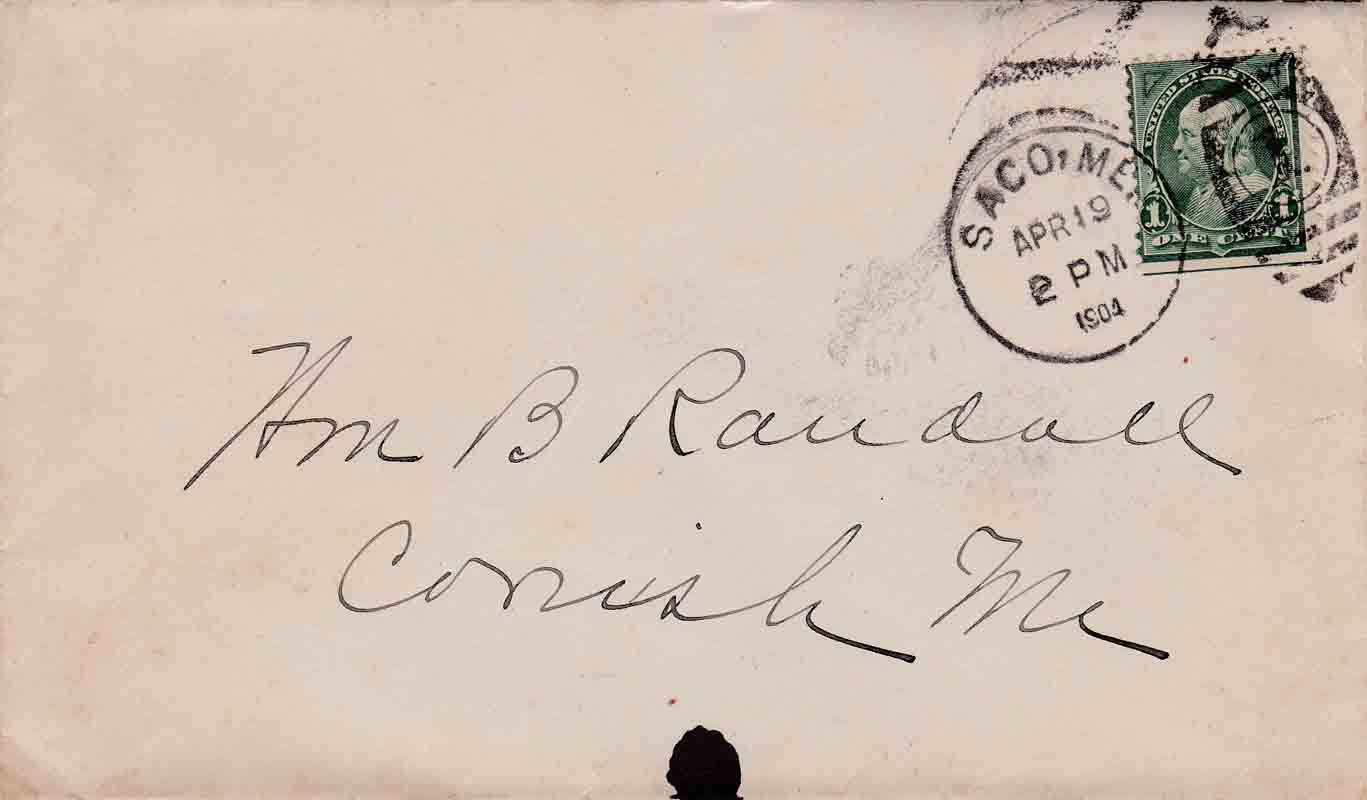 UNITED STATES POSTAGE
SACO, ME.
APR 19
2 PM
1904
1 1
ONE CENT
Wm B Randall
Cornish Me